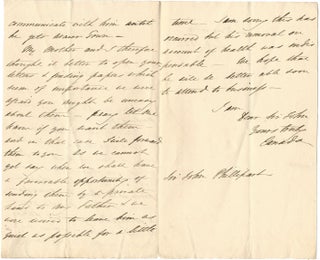 communicate with him until
he gets
My Mother and I therefore
thought it better to open your
letters & finding papers which
seem of importance we were
afraid you might be uneasy
about them — pray let me
know if you want them
and in that case I will forward
them to you. As we cannot
yet say when we shall have
a favorable opportunity of
sending them by a private
hand to my Father & we
were anxious to leave him as
quiet as possible for a little
time — I am sorry this has
occurred but his removal on
account of health was indis
pensable — We hope that
he will be better able soon
to attend to business —
I am
Dear Sir John
Yours truly
Sir John Phillipart